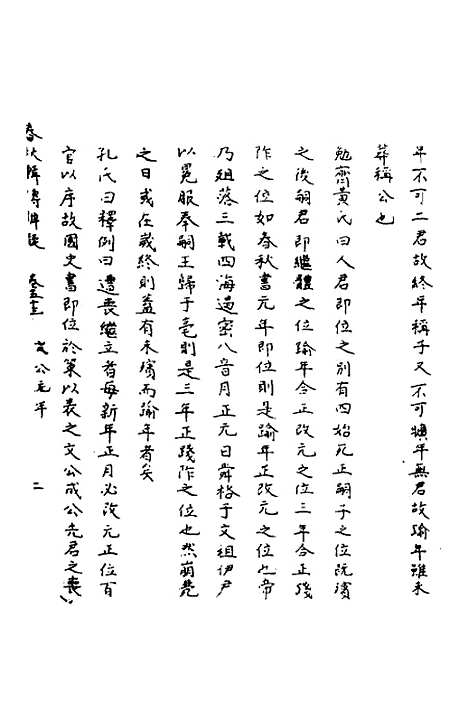 年不可二君故終年稱子又不可曠年無君故踰年雖未
葬稱公也
勉齋黃氏曰人君即位之別有四始死正嗣子之位既殯
之後嗣君即繼體之位踰年合正改元之位三年合正踐
阼之位如春秋書元年即位則是踰年正改元之位也帝
乃殂落三載四海遏密八音月正元日舜格于文祖伊尹
以冕服奉嗣王歸于亳則是三年正踐阼之位也然崩薨
之日或在歲終則蓋有未殯而踰年者矣
孔氏曰釋例曰遭喪繼立者每新年正月必改元正位百
官以序故國史書即位於策以表之文公成公先君之喪
春秋 傳 疑 卷五十三 文公元年 二